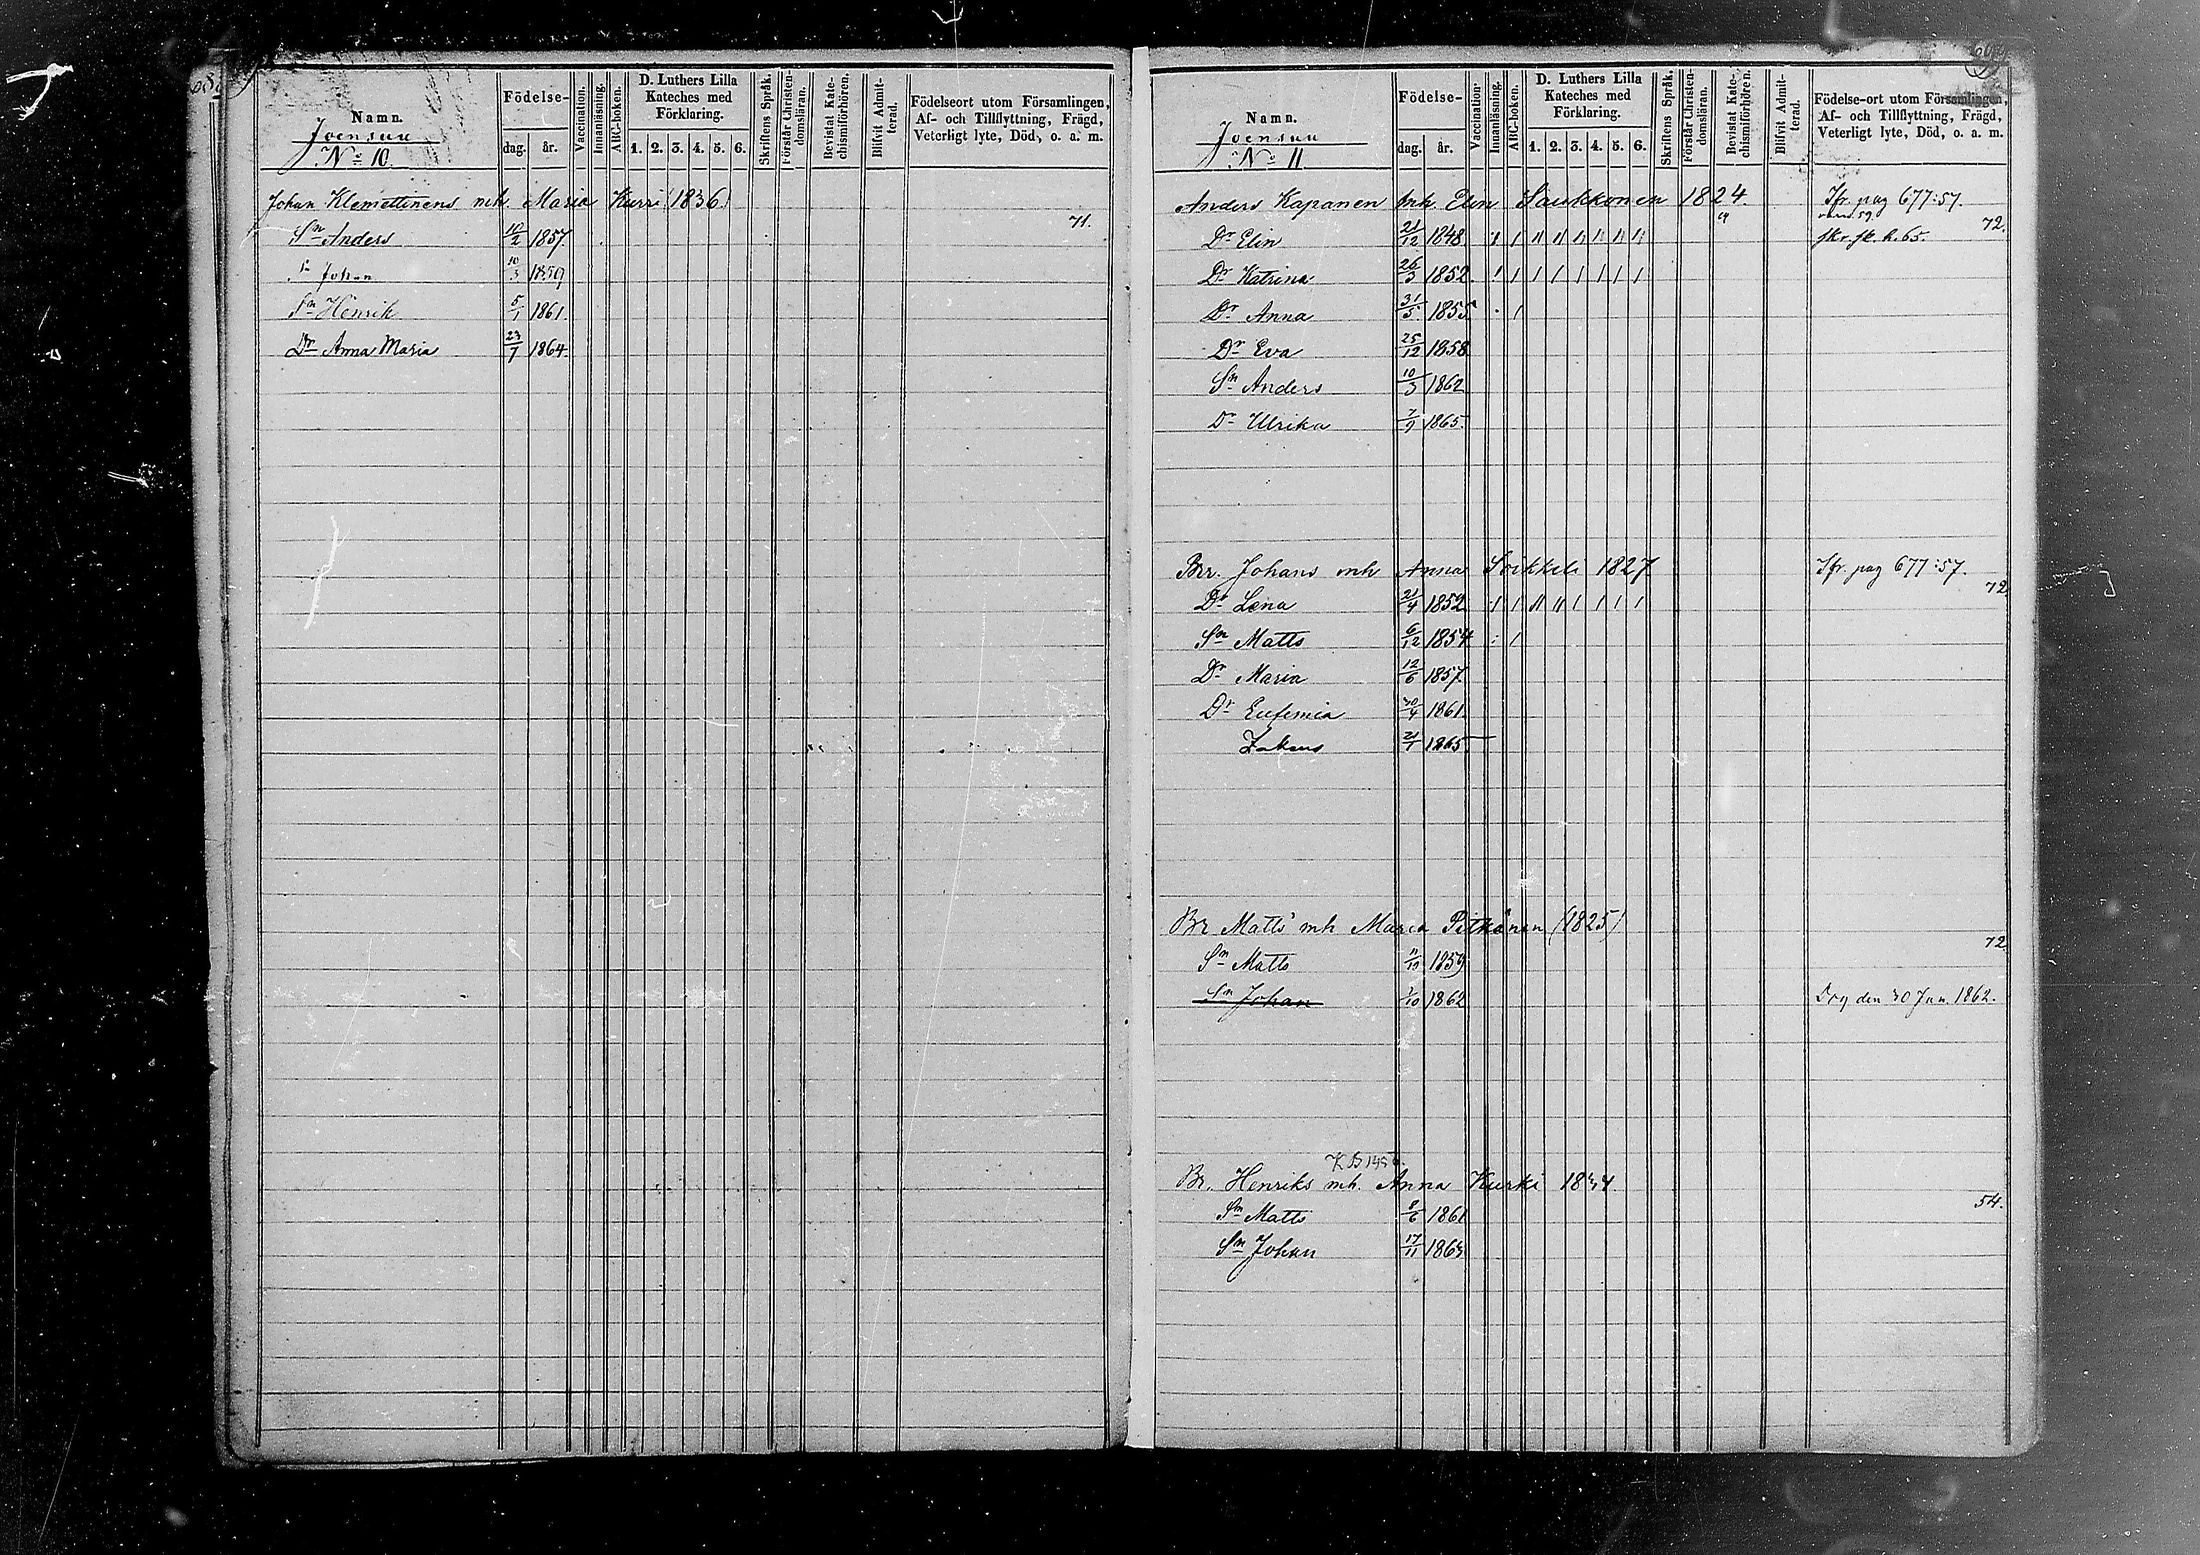 Namn.
Joensuu
No 10.
Födelse-
dag. år.
Vaccination.
Innanläsning.
ABC-boken.
D. Luthers Lilla
Kateches med
Förklaring.
1. 2. 3. 4. 5. 6.
Skriftens Språk.
Förstår Christen-
domsläran.
Bevistat Kate-
chismiförhören.
Blifvit Admit-
terad.
Födelseort utom Församlingen,
Af- och Tillflyttning, Frägd,
Veterligt lyte, Död, o. a. m.
Johan Klemettinens mh. Maria Kurri (1836)
71.
Sn Anders 10/2 1857.
Sn Johan 10/3 1859
Sn Henrik 5/1 1861.
Dr Anna Maria 23/7 1864.
Namn.
Joensuu
No 11
Födelse-
dag. år.
Vaccination.
Innanläsning.
ABC-boken.
D. Luthers Lilla
Kateches med
Förklaring.
1. 2. 3. 4. 5. 6.
Skriftens Språk.
Förstår Christen-
domsläran.
Bevistat Kate-
chismiförhören.
Blifvit Admit-
terad.
Födelse-ort utom Församlingen,
Af- och Tillflyttning, Frägd,
Veterligt lyte, Död, o. a. m.
Anders Kapanen mh. Elin Saukkonen 1824. Ifr. pag 677:57.
72.
Dr Elin 21/12 1848
Dr Katrina 26/3 1852.
Dr Anna 31/5 1855
Dr Eva 25/12 1858
Sn Anders 10/3 1862
Dr Ulrika 7/9 1865.
Br. Johans mh Anna Soikkeli 1827. Ifr. pag 677:57.
72
Dr Lena 21/4 1852
Sn Matts 6/12 1854
Dr Maria 12/6 1857.
Dr Eufemia 30/4 1861.
21/1 1865
Br Matts mh Maria Pitkänen (1825)
72
Sn Matts 1859
Sn Johan 1862 den 30 Jun. 1862.
Br. Henriks mh. Anna Kurki
54.
Sn Matts 8/6 1861
Sn Johan 17/11 1863